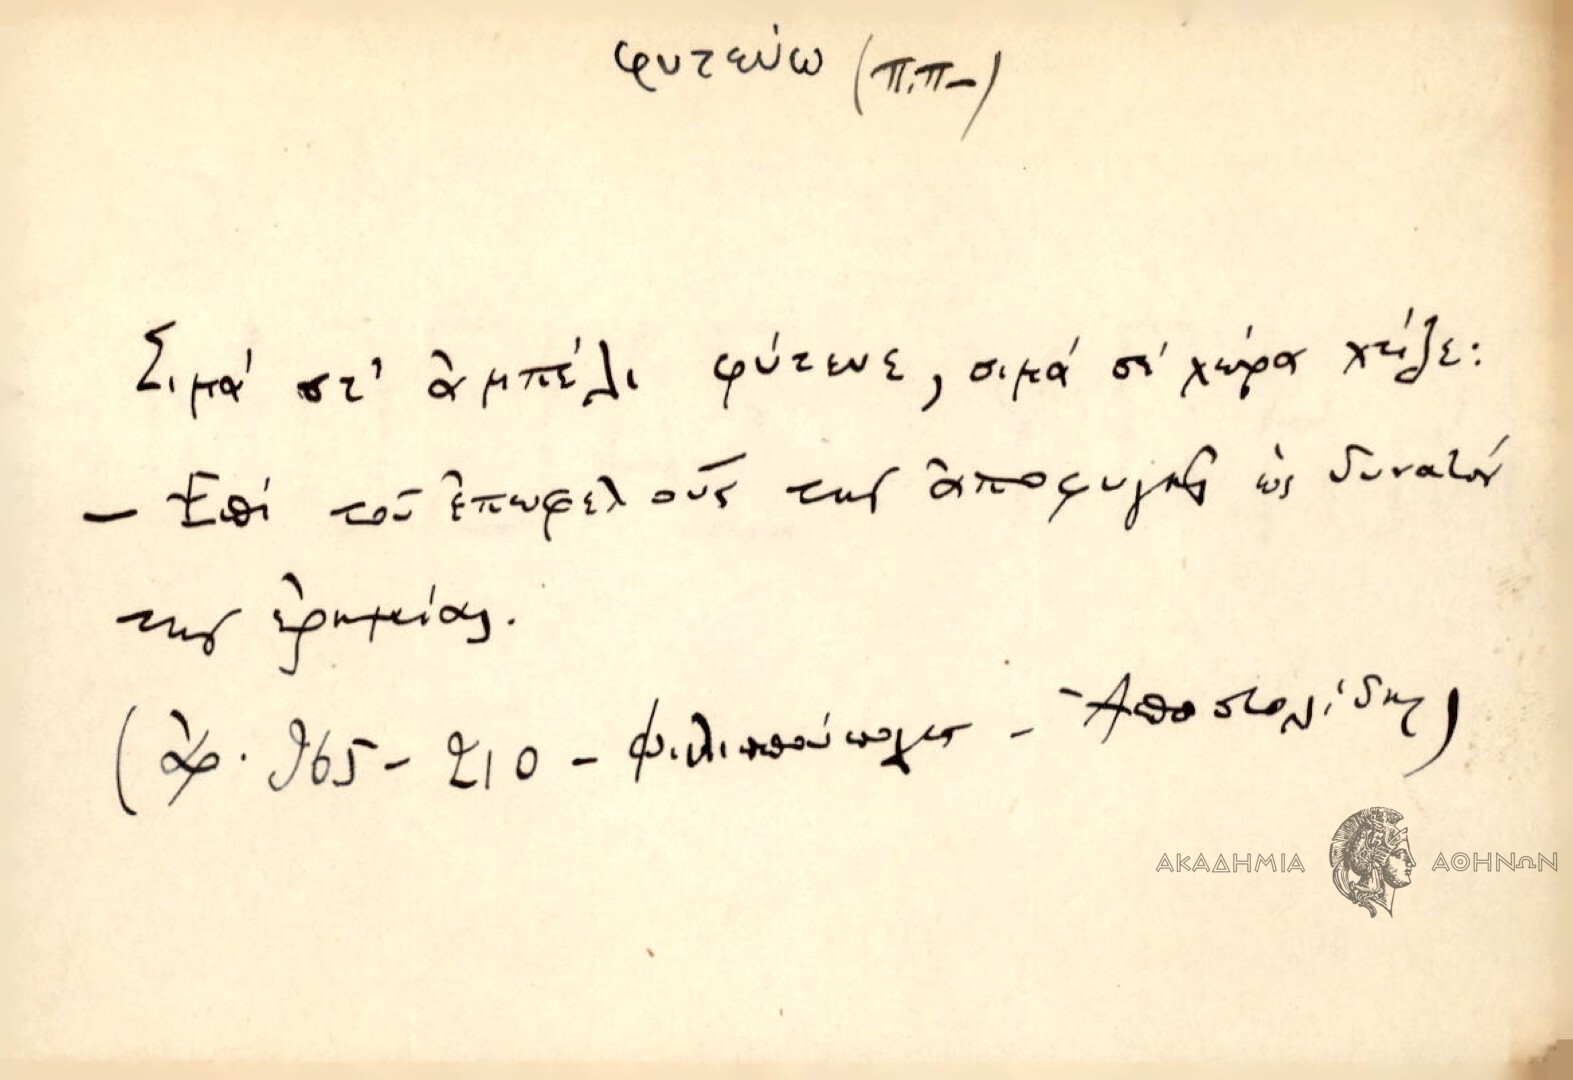 φυτεύω (π.π-)
Σιμά στ' ἀμπέλι φύτευε, σιμά σέ χώρα χτίζε:
— Ἐπί τοῦ ἐπωφελοῦς τῆς ἀποφυγῆς ὡς δυνατόν
τῆς ἐρημίας.
(ἀρ. 965 - 210 - Φιλιππούπολις - Ἀποστολίδης)
ΑΚΑΔΗΜΙΑ ΑΘΗΝΩΝ